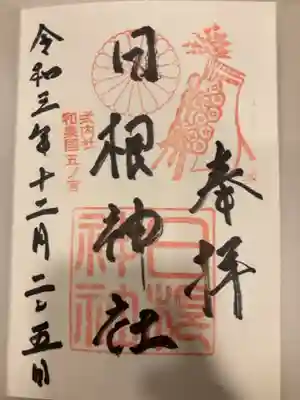 奉拝
日根神社
式内社
和泉国五ノ宮
令和三年十二月二十五日